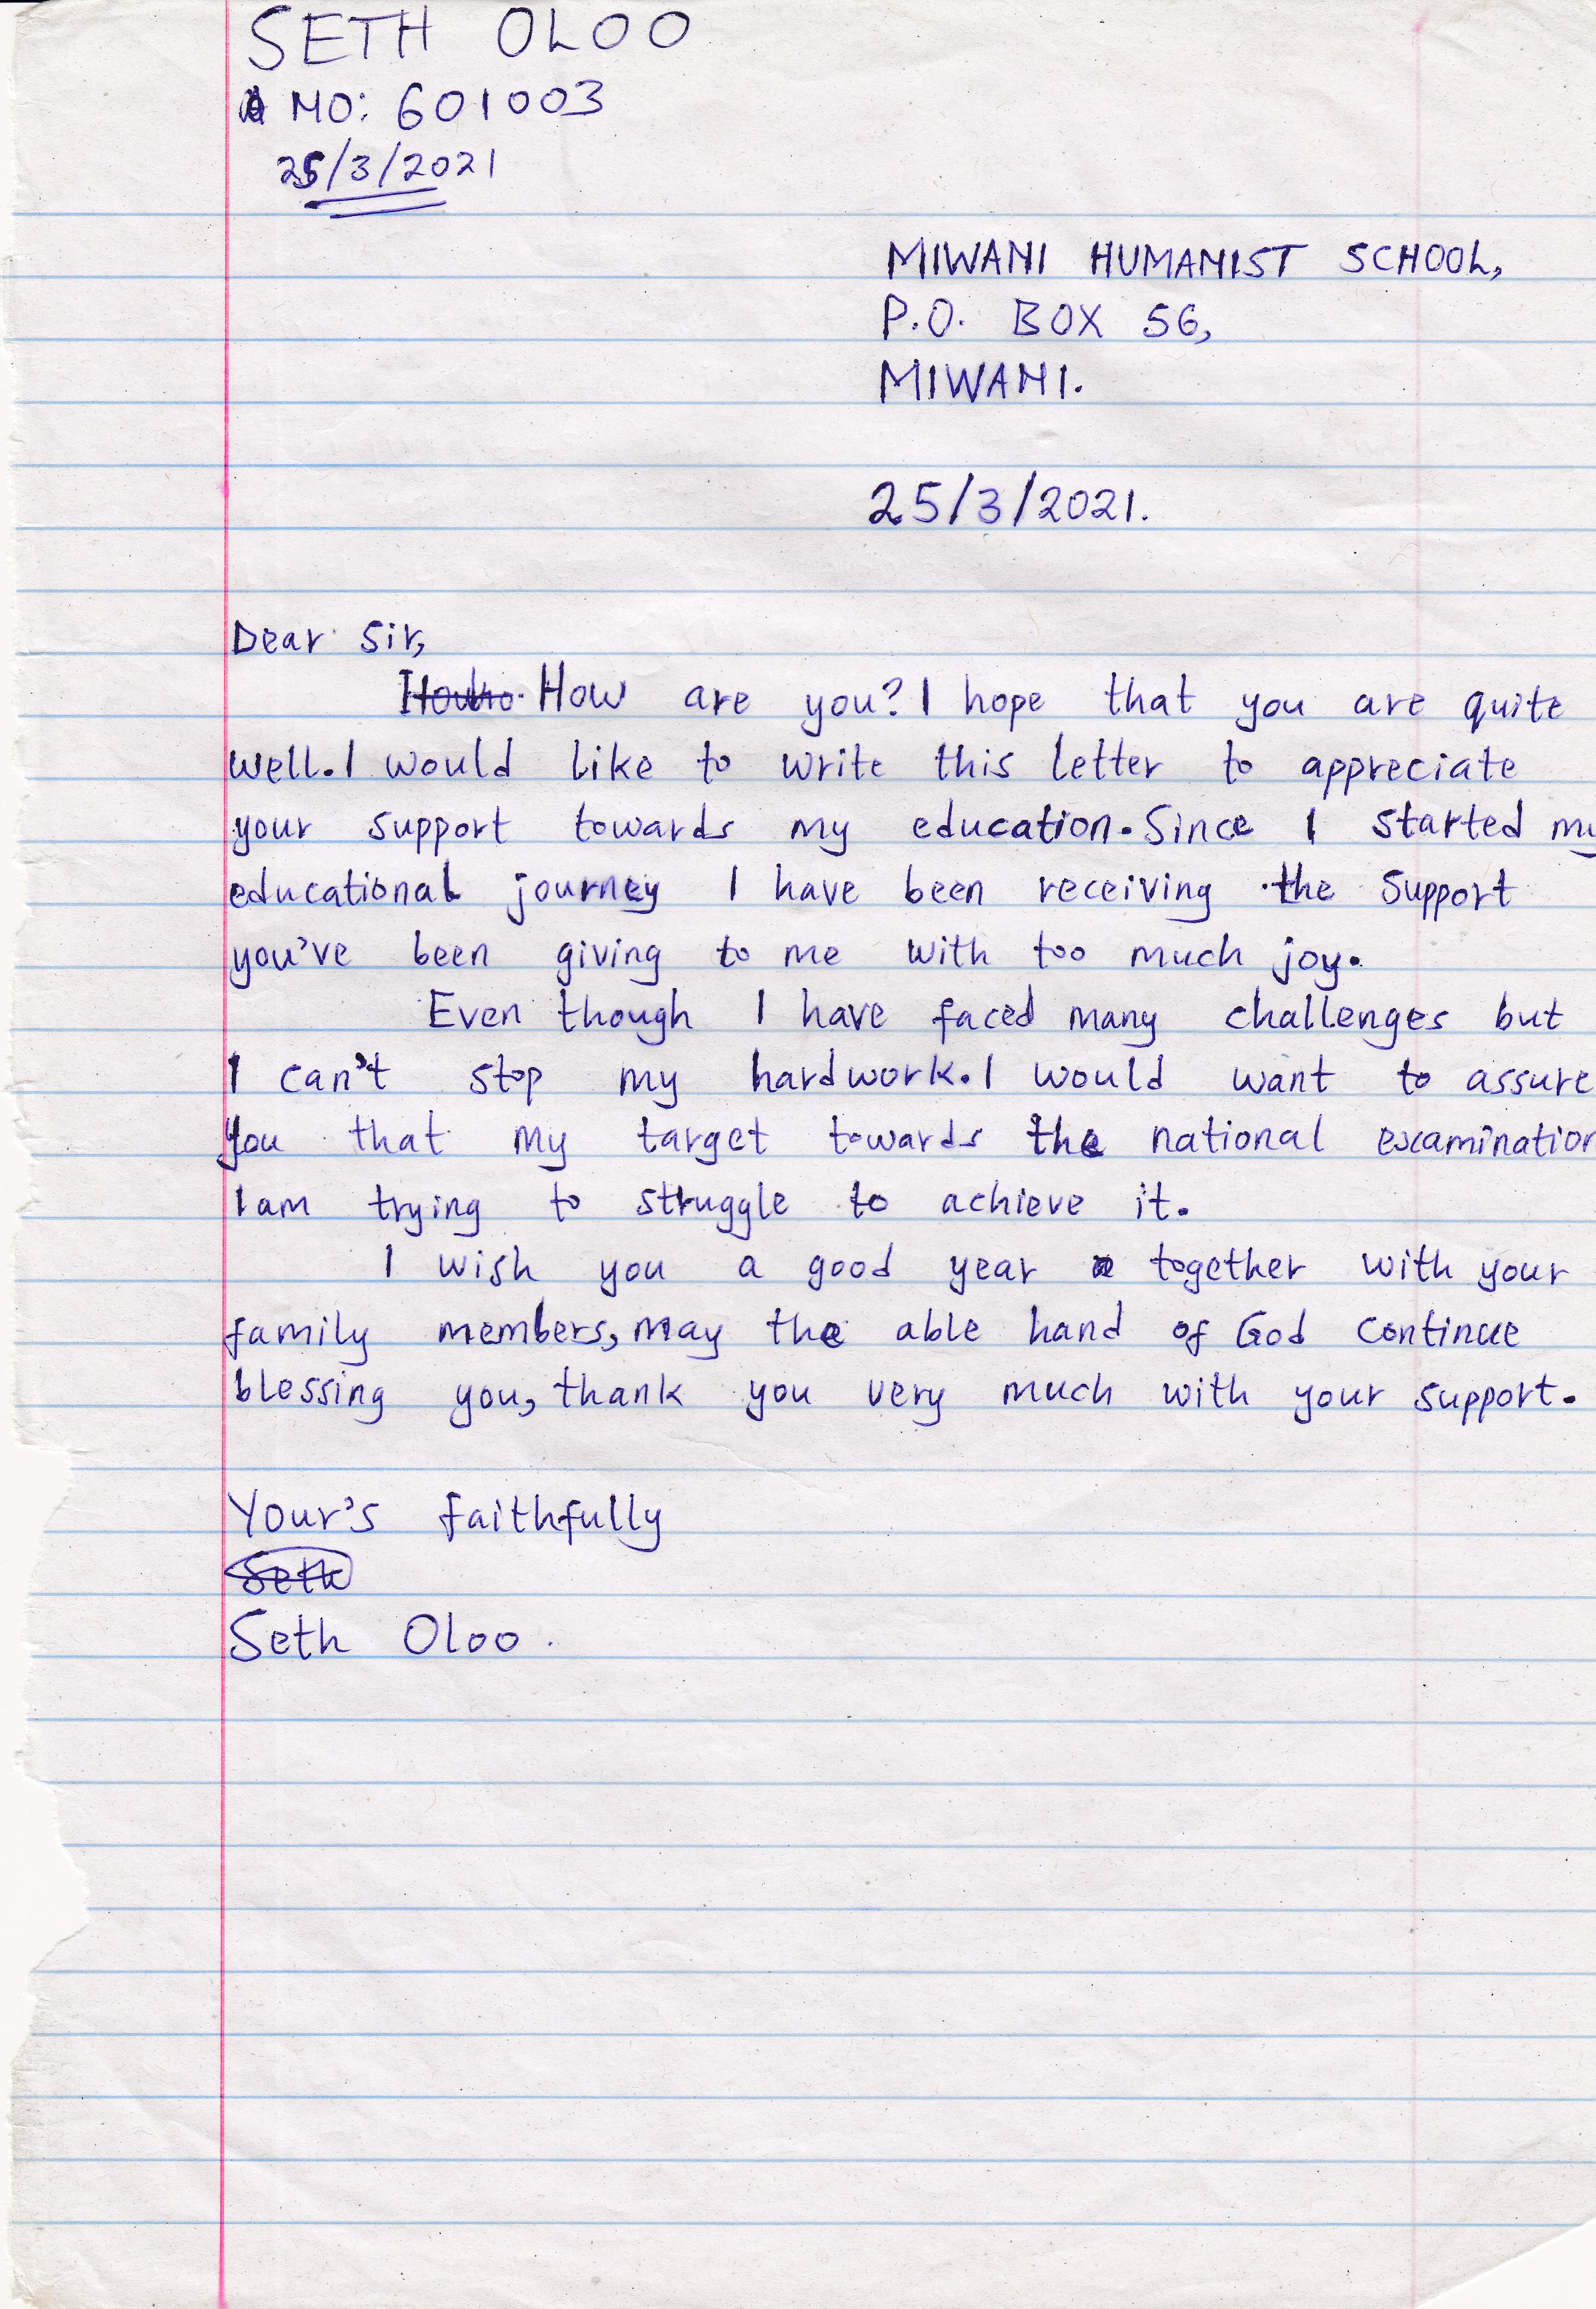 SETH OLOO
NO: 601003
25/3/2021
MIWANI HUMANIST SCHOOL,
P.O. BOX 56,
MIWANI.
25/3/2021.
Dear Sir,
How are you? I hope that you are quite
well. I would like to write this letter to appreciate
your support towards my education. Since I started my
educational journey I have been receiving the support
you've been giving to me with too much joy.
Even though I have faced many challenges but
I can't stop my hardwork. I would want to assure
you that my target towards the national examination
I am trying to struggle to achieve it.
I wish you a good year together with your
family members, may the able hand of God continue
blessing you, thank you very much with your support.
Your's faithfully
Seth
Seth Oloo.